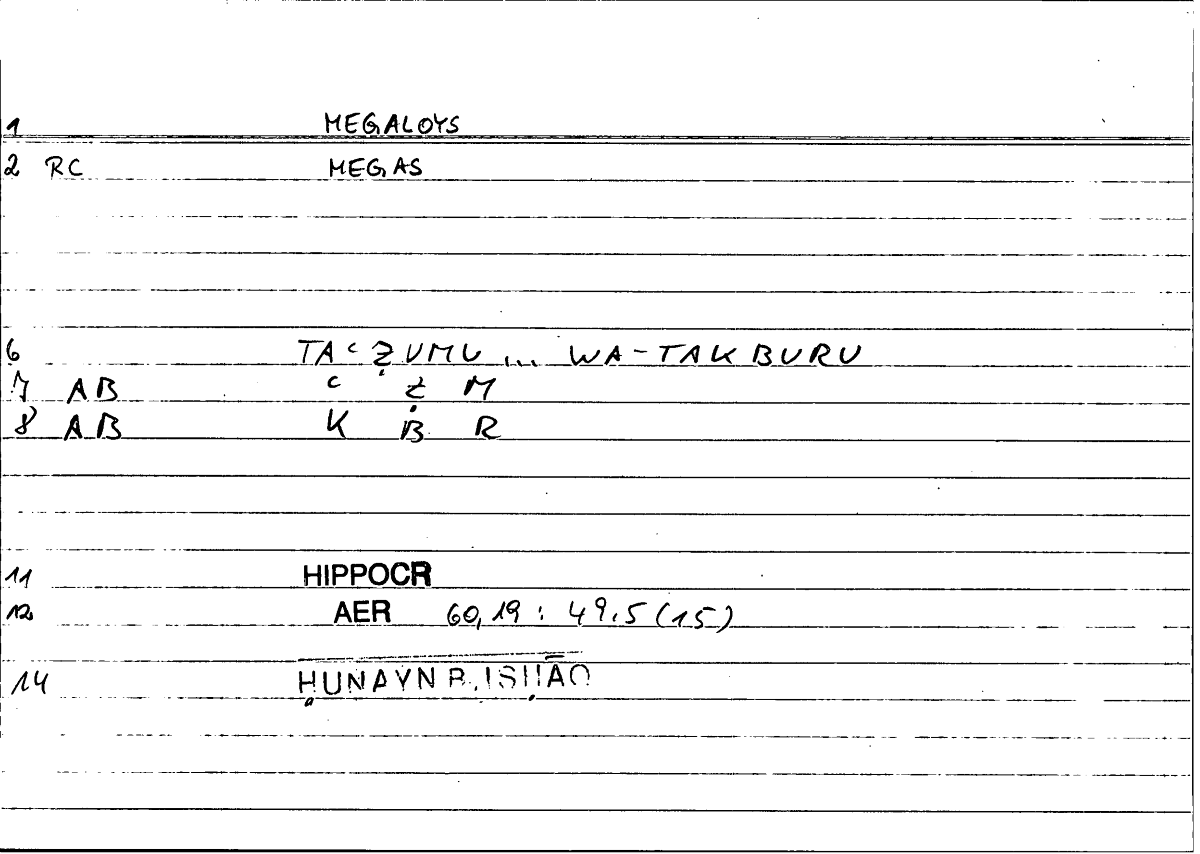 1 MEGALOYS
2 RC MEGAS
6 TAcẒUMU ... WA-TAKBURU
7 AB c Ẓ M
8 AB K B R
11 HIPPOCR
12 AER 60,19 : 49,5 (15)
14 ḤUNAYN B. ISḤĀQ